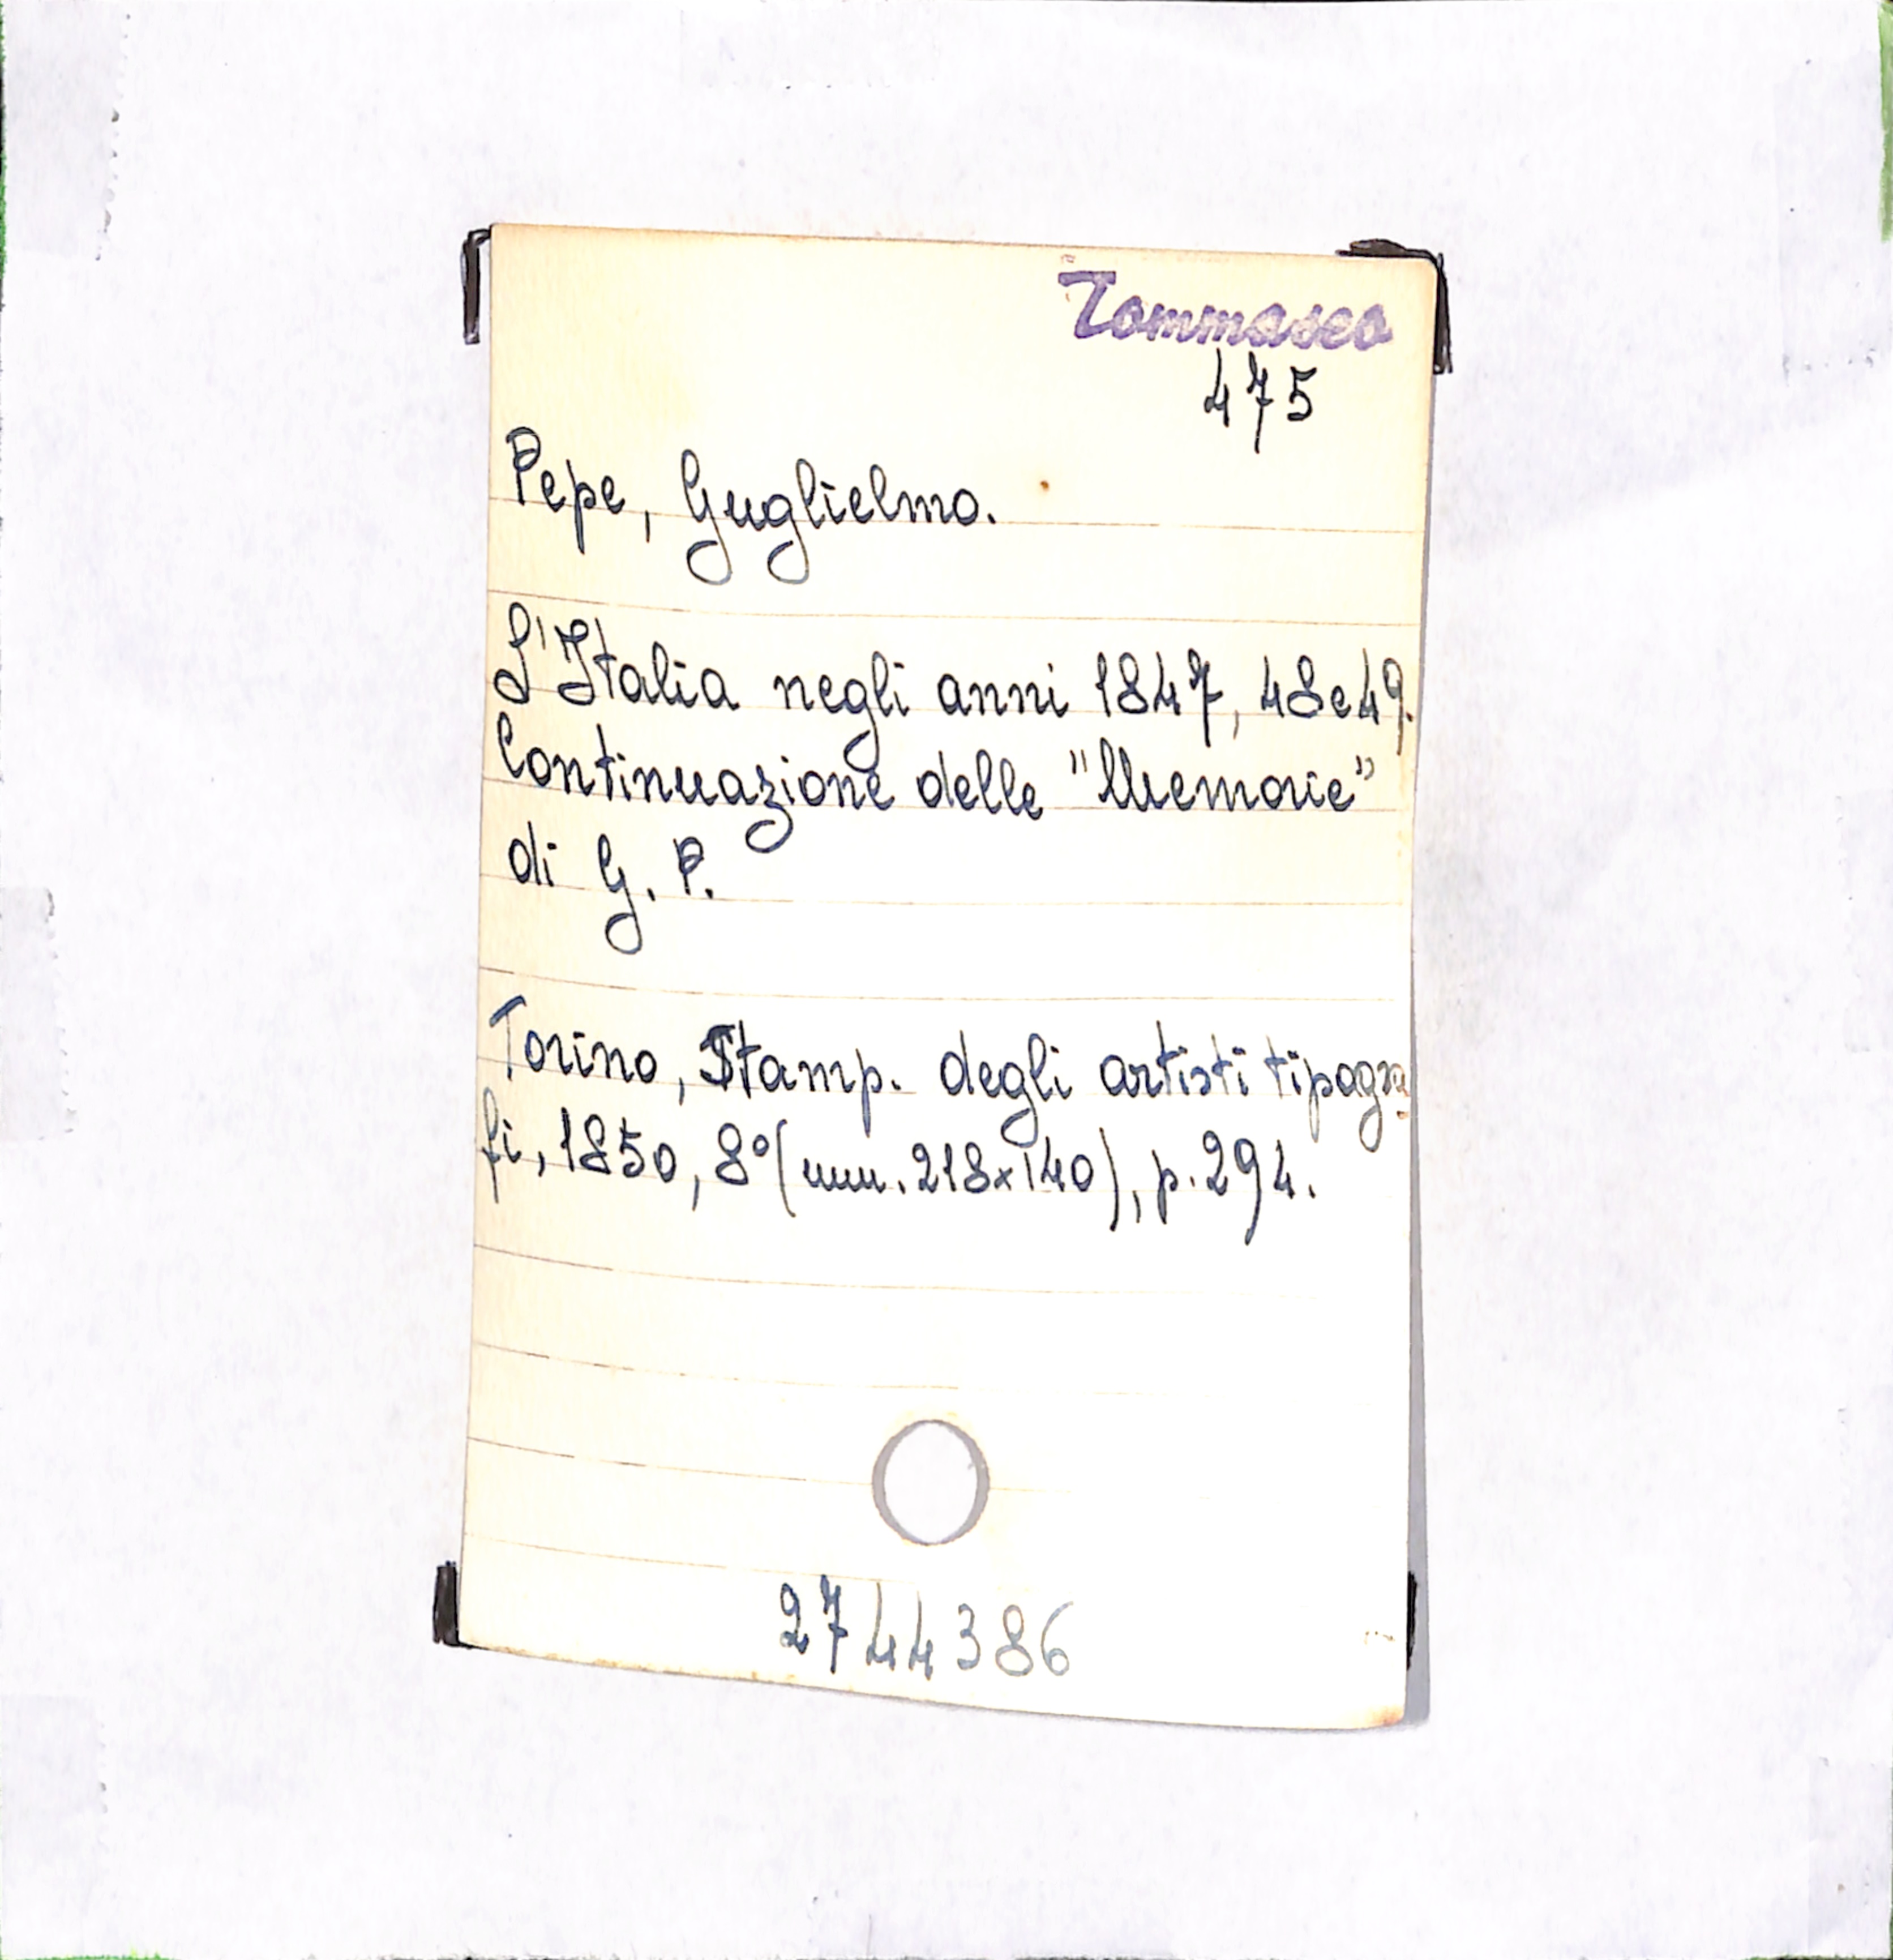 Tommaseo
475
Pepe, Guglielmo.
L'Italia negli anni 1847, 48 e 49.
Continuazione delle "Memorie"
di G. P.
Torino, Stamp. degli artisti tipogra
fi, 1850, 8° (mm. 218x140), p. 294.
2744386